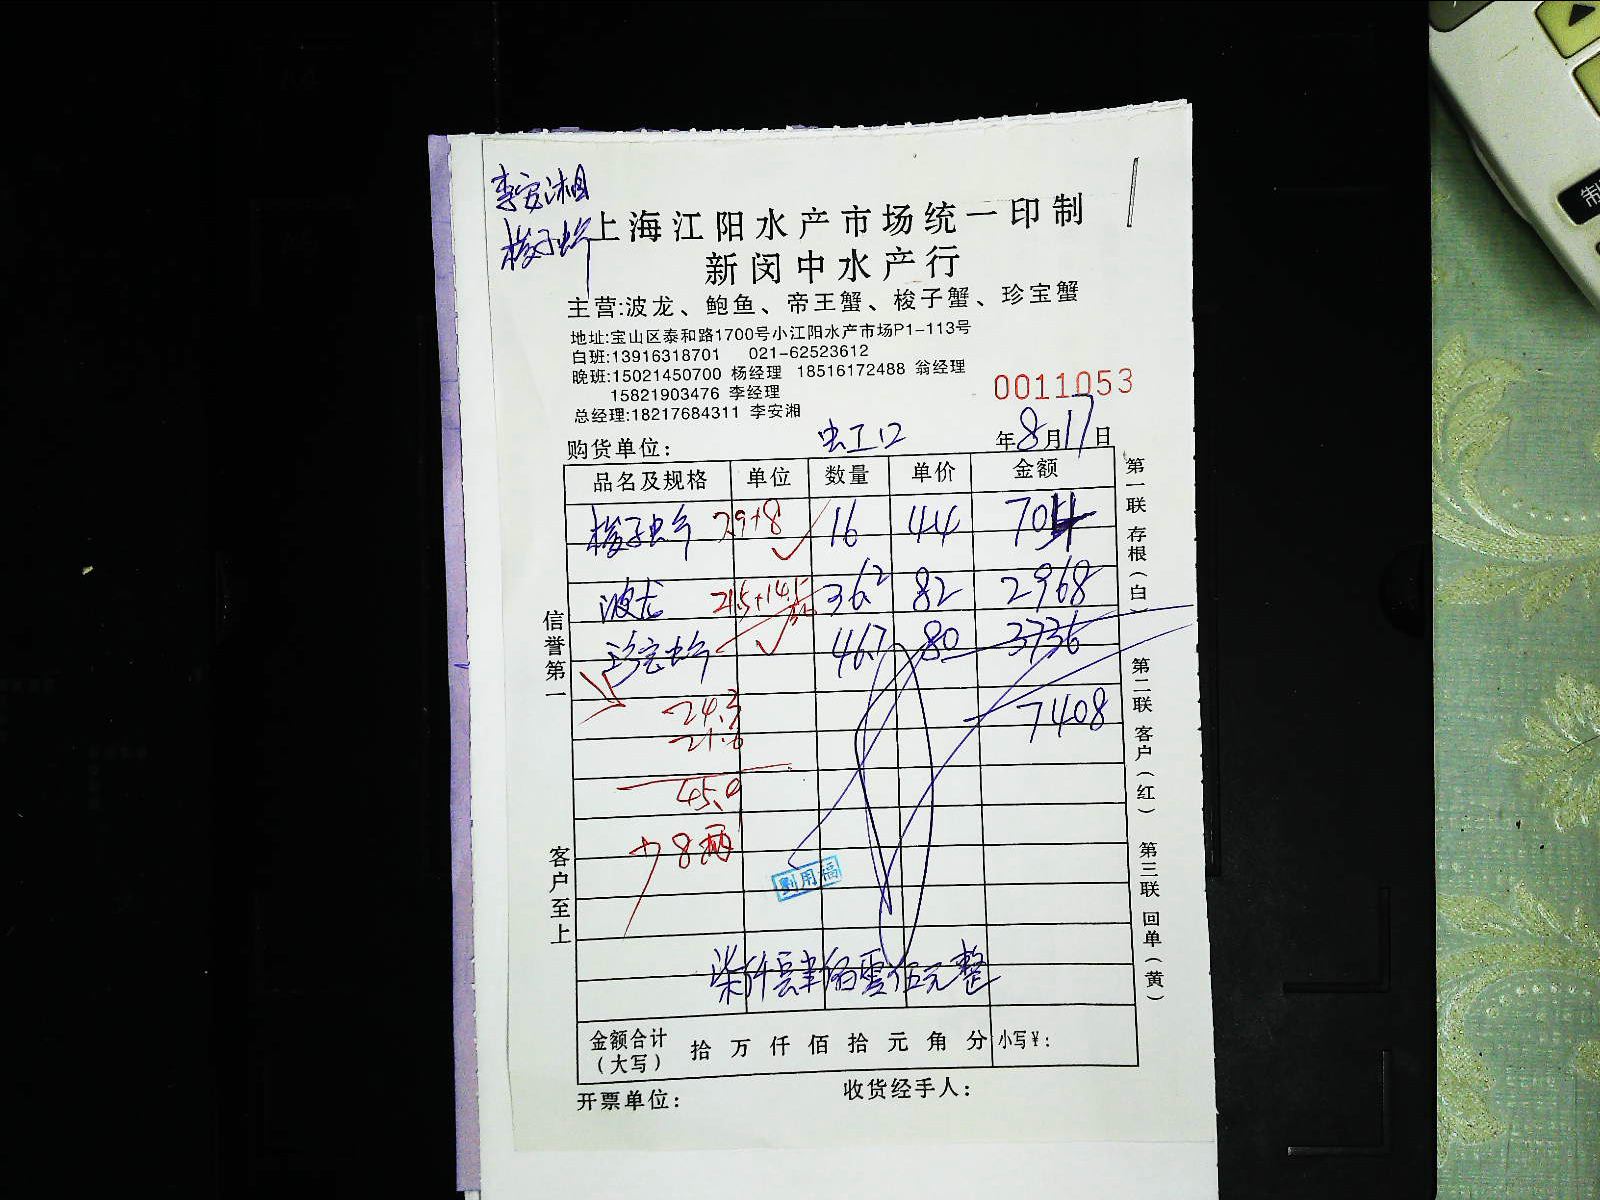 李安湘
梭子蟹
上海江阳水产市场统一印制
新闵中水产行
主营:波龙、鲍鱼、帝王蟹、梭子蟹、珍宝蟹
地址:宝山区泰和路1700号小江阳水产市场P1-113号
白班:13916318701 021-62523612
晚班:15021450700 杨经理 18516172488 翁经理
15821903476 李经理
总经理:18217684311 李安湘
0011053
购货单位: 虹口 年8月17日
品名及规格 单位 数量 单价 金额
梭子蟹 7.9+8 16 44 704
波龙 21.5+14.5 36.2 82 2968
珍宝蟹 46.7 80 3736
24.3 7408
21.6
45.9
少8两
柒仟肆佰零伍元整
金额合计(大写) 拾 万 仟 佰 拾 元 角 分 小写¥:
开票单位: 收货经手人:
信誉第一
客户至上
第一联 存根(白)
第二联 客户(红)
第三联 回单(黄)
制